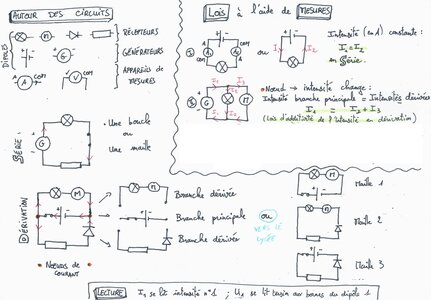 AUTOUR DES CIRCUITS
DIPÔLES
M
RÉCEPTEURS
G
GÉNÉRATEURS
A COM
V COM
APPAREILS DE MESURES
SÉRIE
G
M
• Une boucle
ou
Une maille
DÉRIVATION
M
• Nœuds de
courant
M
Branche dérivée
Branche principale
Branche dérivée
Lois à l'aide de MESURES
A A
ou
I1 I2
Intensité (en A) constante :
I1 = I2
en Série.
G M
I1 I2 I3
• Nœud → intensité change :
Intensité branche principale = Intensités dérivées
I1 = I2 + I3
(Lois d'additivité de l'intensité en dérivation)
ou
VERS LE
LYCÉE
M
Maille 1
M
Maille 2
Maille 3
LECTURE I1 se lit intensité n°1 ; U1 se lit tension aux bornes du dipôle 1